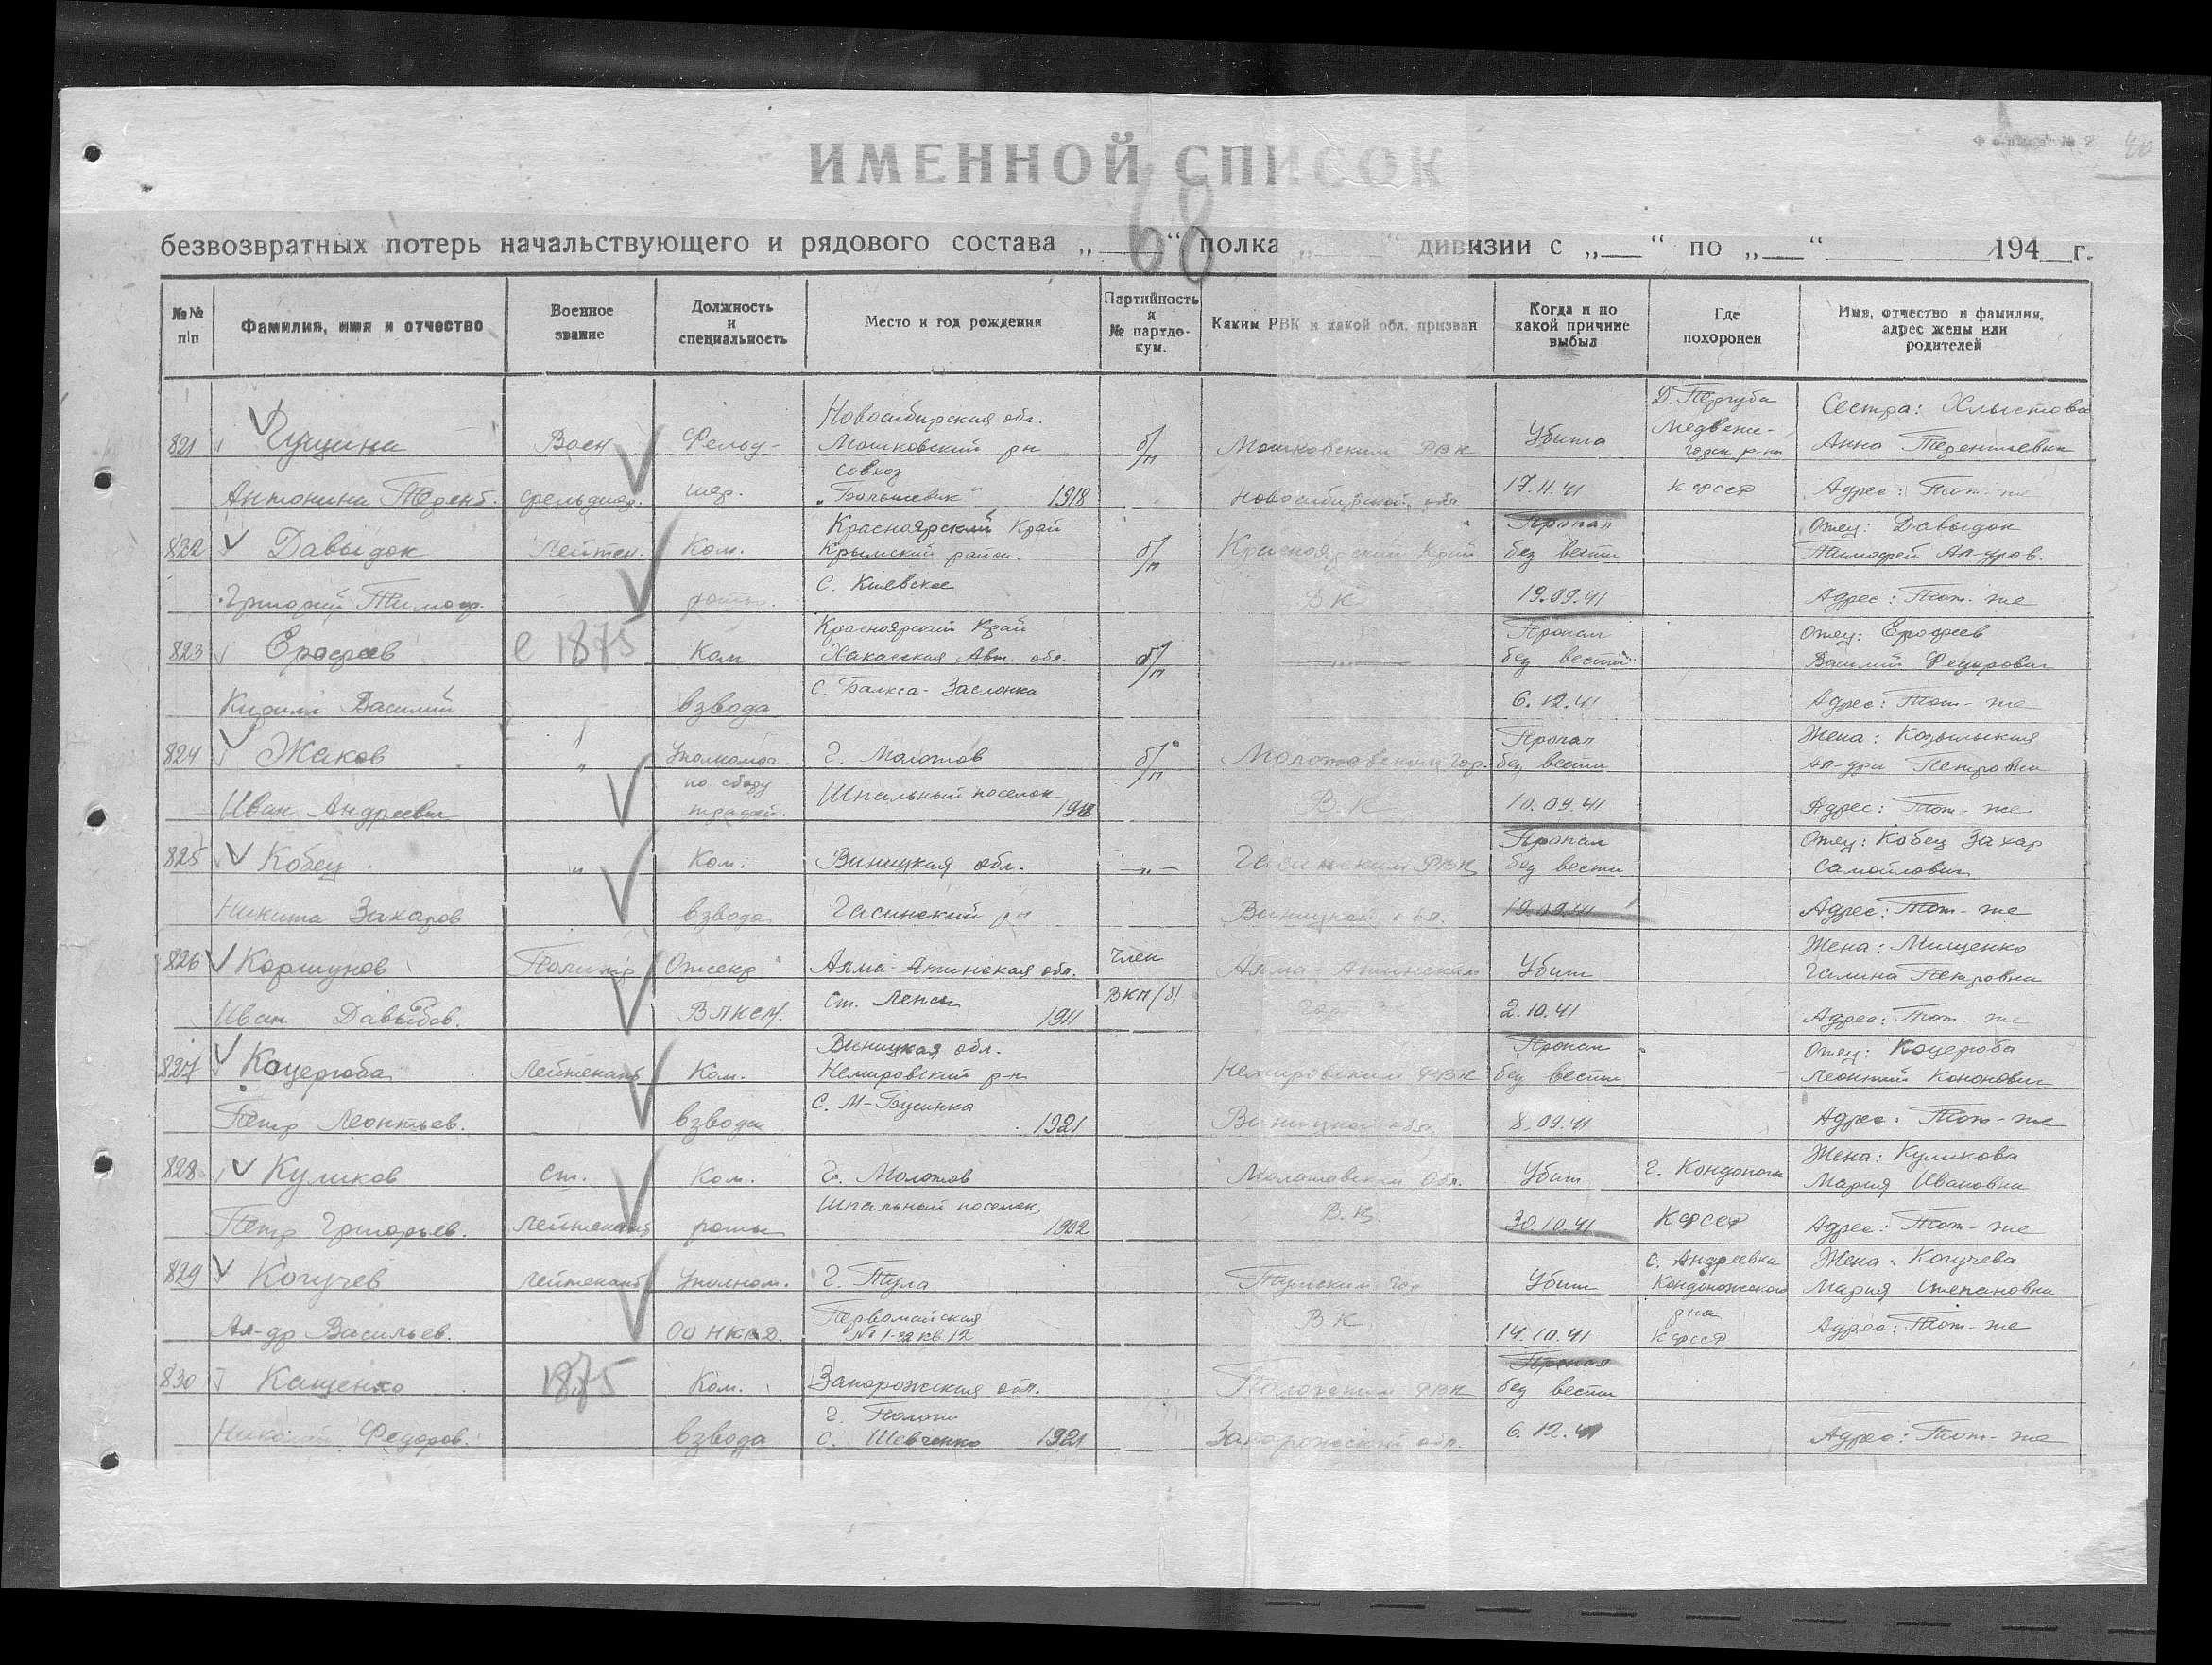 ИМЕННОЙ СПИСОК
68
безвозвратных потерь начальствующего и рядового состава „___“ полка „___“ дивизии с „___“ по „___“ 194__г.
№№ п/п
Фамилия, имя и отчество
Военное звание
Должность и специальность
Место и год рождения
Партийность и № партдокум.
Каким РВК и какой обл. призван
Когда и по какой причине выбыл
Где похоронен
Имя, отчество и фамилия, адрес жены или родителей
821 Гущина Воен Фельд- Новосибирская обл. Мошковский рн б/п Мошковским РВК Убита Д. Пергуба Медвежи- Сестра: Хлыстова Анна Терентьевна
Антонина Терент. фельдшер. шер. совхоз „Большевик“ 1918 Новосибирской обл. 17.11.41 горск. р-на КФССР Адрес: Тот-же
822 Давыдок Лейтен. Ком. Красноярский Край Крымский район б/п Красноярский Край Пропал без вести Отец: Давыдок Тимофей Ал-дров.
Григорий Тимоф. роты. с. Киевское ВК 19.09.41 Адрес: Тот-же
823 Ерофеев с 1875 Ком Красноярский Край Хакасская Авт. обл. б/п Пропал без вести Отец: Ерофеев Василий Федорович
Кирилл Василий взвода с. Балкса-Заслонка 6.12.41 Адрес: Тот-же
824 Жаков „ Уполномоч. г. Молотов б/п Молотовским Гор. Пропал без вести Жена: Ал-дра Петровна
Иван Андреевич по сбору Шпальный поселок 1918 В.К. 10.09.41 Адрес: Тот-же
825 Кобец „ Ком. Виницкая обл. —„— РВК Пропал без вести Отец: Кобец Захар Самойлович
Никита Захаров взвода Гасинский рн Виницкой обл. 19.09.41 Адрес: Тот-же
826 Коршунов Отсекр Алма-Атинская обл. член Алма-Атинским Убит Жена: Мищенко Галина Петровна
Иван Давыдов. ВЛКСМ. ст. Лепсы 1911 ВКП/б/ Гор. 2.10.41 Адрес: Тот-же
827 Коцерюба Лейтенант Ком. Виницкая обл. Немировский р-н Немировским РВК Пропал без вести Отец: Коцерюба Леонтий Кононович
Петр Леонтьев. взвода с. М-Бусинка 1921 Виницкой обл. 8.09.41 Адрес: Тот-же
828 Куликов Ст. Ком. Гр. Молотов Молотовским Обл. Убит г. Кондопога Жена: Куликова Мария Ивановна
Петр Григорьев. Лейтенант роты Шпальный поселок 1902 В.К. 30.10.41 КФССР Адрес: Тот-же
829 Когучев Лейтенант Уполном. г. Тула Тульским Гор Убит с. Андреевка Кондопожского Жена: Когучева Мария Степановна
Ал-др Васильев. ОО НКВД. Первомайская № 1-32 кв 12 ВК 14.10.41 рна КФССР Адрес: Тот-же
830 Кащенко 1875 Ком. Запорожская обл. Пологским РВК Пропал без вести
Николай Федоров. взвода г. Пологи с. Шевченко 1921 Запорожской обл. 6.12.41 Адрес: Тот-же